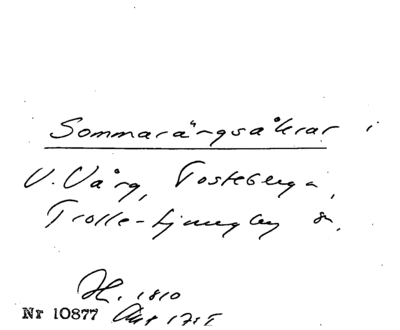 Sommarängsåkrar i
V. Vång, Tosteberga,
Trolle-Ljungby sn.
H. 1810
Nr 10877